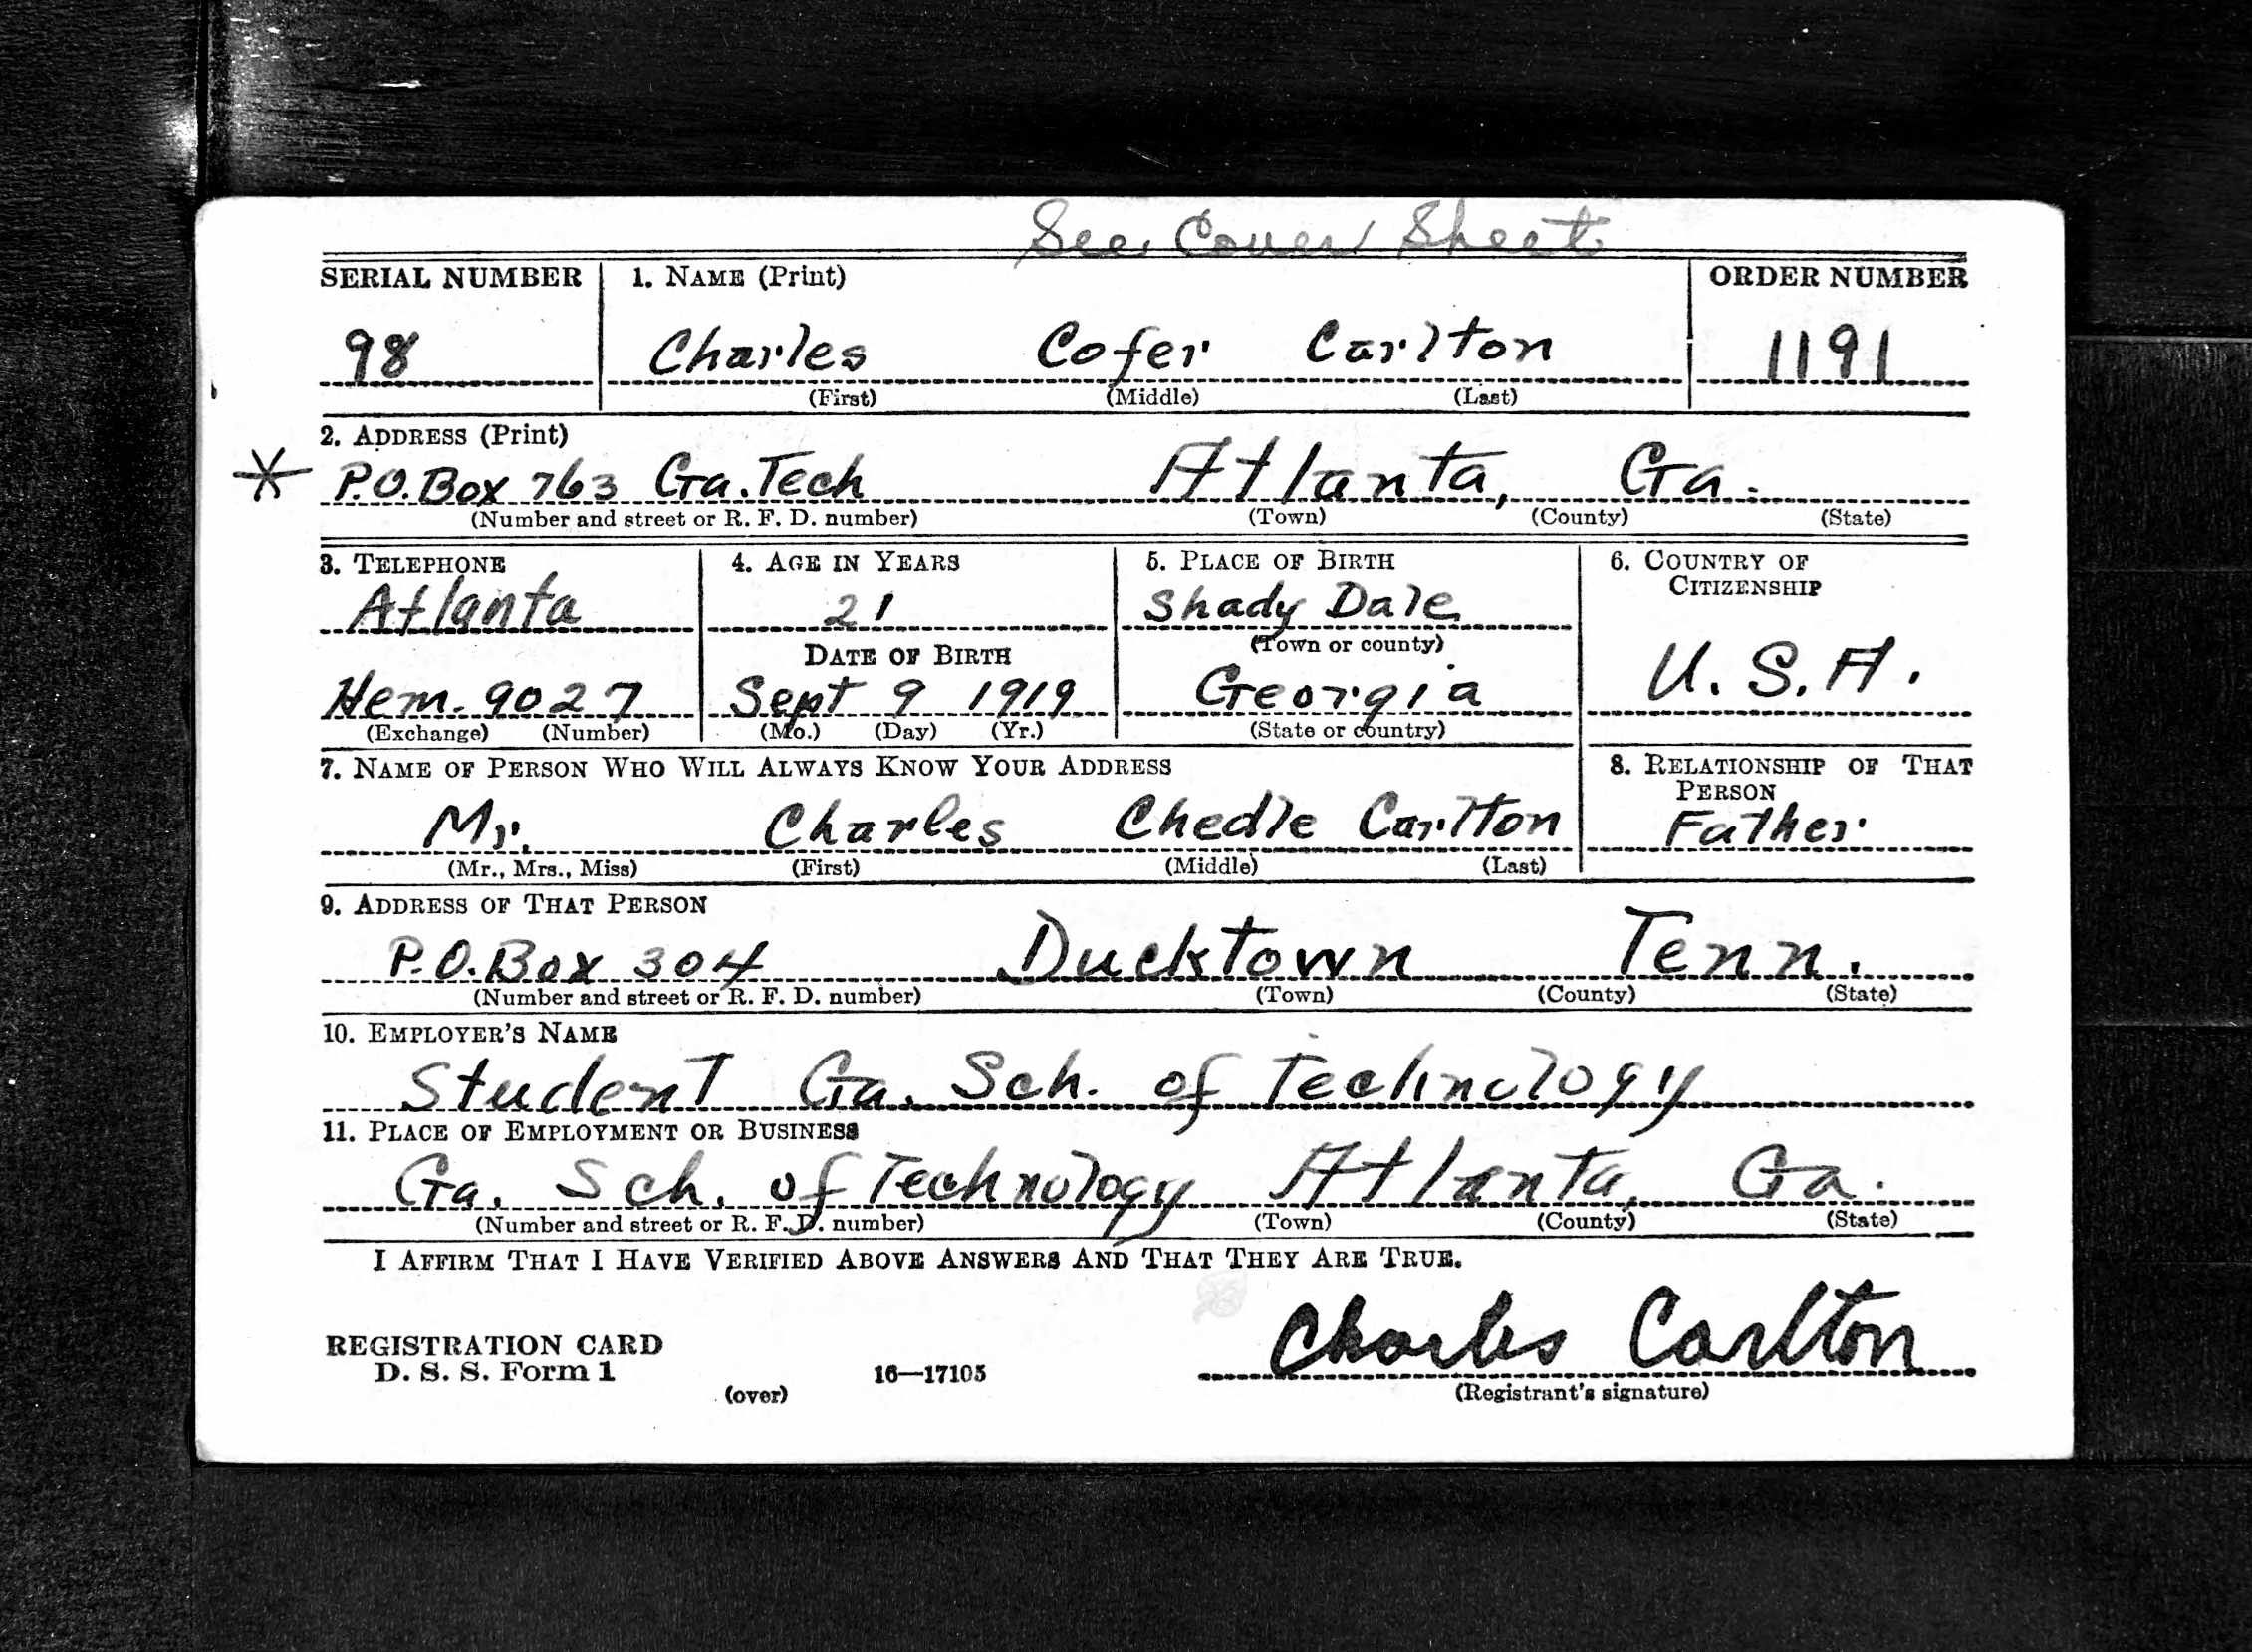 See Cover Sheet
SERIAL NUMBER 1. NAME (Print) ORDER NUMBER
98 Charles Cofer Carlton 1191
(First) (Middle) (Last)
2. ADDRESS (Print)
* P.O. Box 763 Ga. Tech Atlanta, Ga.
(Number and street or R. F. D. number) (Town) (County) (State)
3. TELEPHONE 4. AGE IN YEARS 5. PLACE OF BIRTH 6. COUNTRY OF
CITIZENSHIP
Atlanta 21 Shady Dale
DATE OF BIRTH (Town or county)
Hem. 9027 Sept 9 1919 Georgia U. S. A.
(Exchange) (Number) (Mo.) (Day) (Yr.) (State or country)
7. NAME OF PERSON WHO WILL ALWAYS KNOW YOUR ADDRESS 8. RELATIONSHIP OF THAT
PERSON
Mr. Charles Chedle Carlton Father
(Mr., Mrs., Miss) (First) (Middle) (Last)
9. ADDRESS OF THAT PERSON
P.O. Box 304 Ducktown Tenn.
(Number and street or R. F. D. number) (Town) (County) (State)
10. EMPLOYER'S NAME
Student Ga. Sch. of Technology
11. PLACE OF EMPLOYMENT OR BUSINESS
Ga. Sch. of Technology Atlanta, Ga.
(Number and street or R. F. D. number) (Town) (County) (State)
I AFFIRM THAT I HAVE VERIFIED ABOVE ANSWERS AND THAT THEY ARE TRUE.
Charles Carlton
REGISTRATION CARD
D. S. S. Form 1 16—17105
(over) (Registrant's signature)